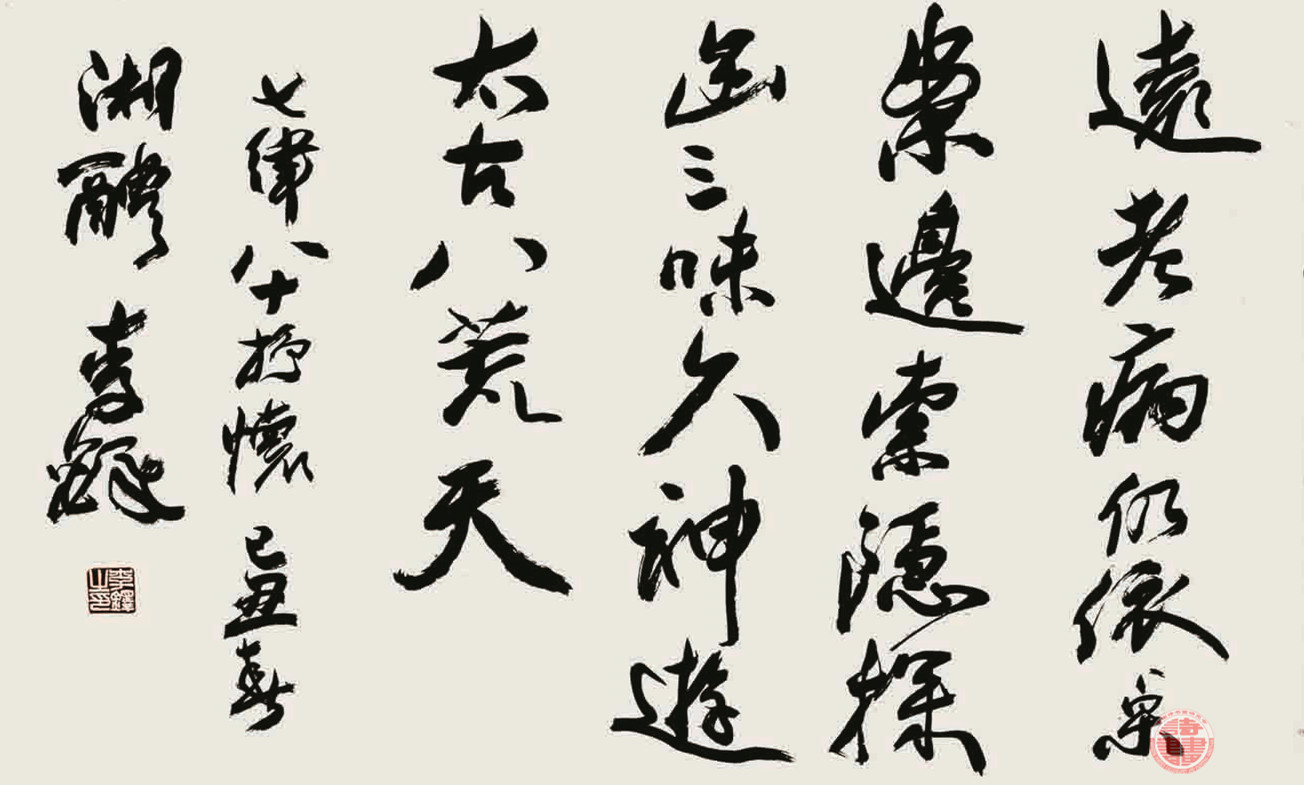 遠老病仍依桌
案邊索隱探
幽三味久神遊
太古八荒天
七律八十抒懷己丑春
湘醴李鐸
李鐸之印